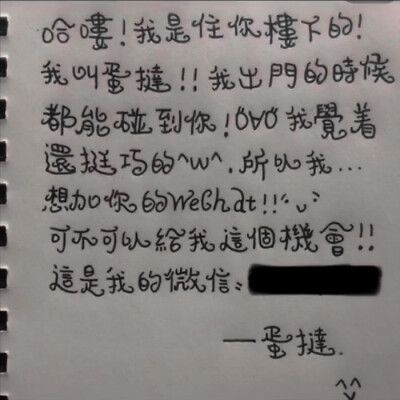 哈嘍!我是住你樓下的!
我叫蛋撻!!我出門的時候
都能碰到你!OVO我覺着
還挺巧的^w^.所以我...
想加你的WeChat!!
可不可以給我這個機會!!
這是我的微信:
一蛋撻.
^^